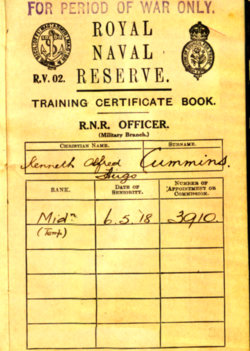 FOR PERIOD OF WAR ONLY.
ROYAL
NAVAL
R.V. 02. RESERVE.
TRAINING CERTIFICATE BOOK.
R.N.R. OFFICER.
(Military Branch.)
CHRISTIAN NAME. SURNAME.
Kenneth Alfred Cummins.
Hugo
RANK. DATE OF SENIORITY. NUMBER OF APPOINTMENT OR COMMISSION.
Midn 6.5.18 3910
(Temp)